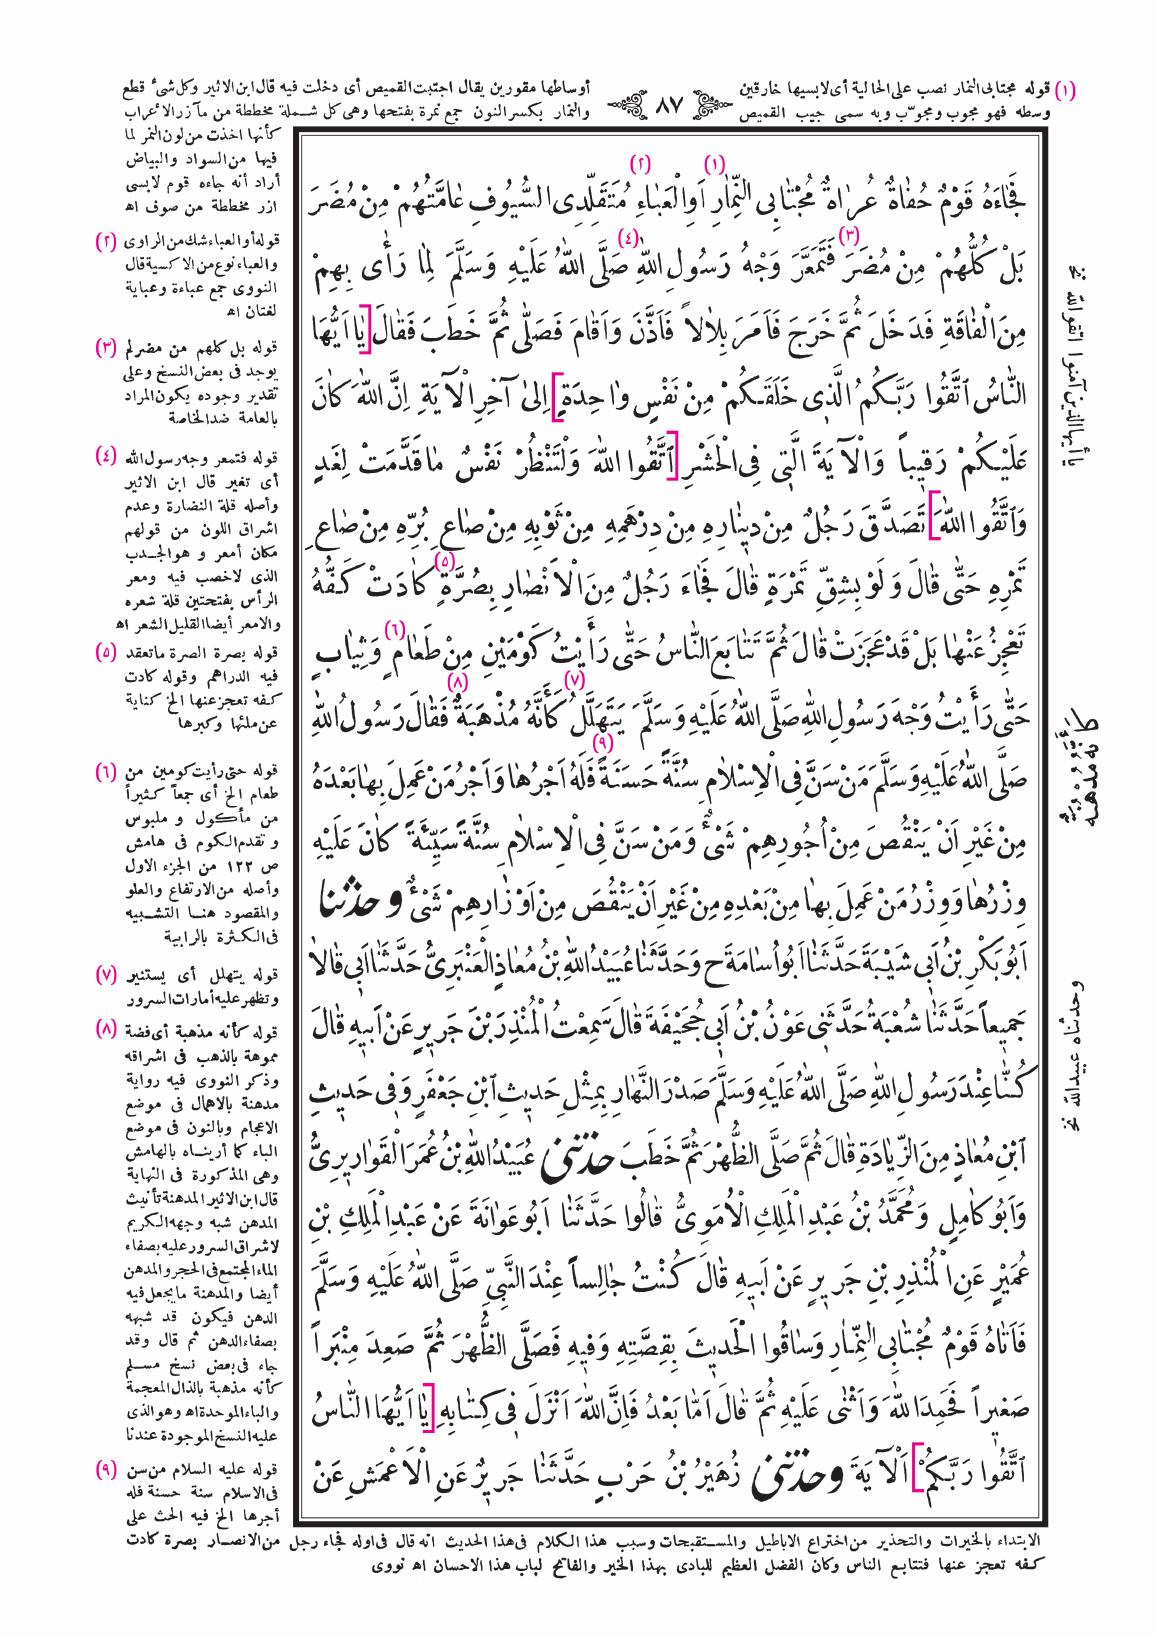 (١) قوله مجتابى النمار نصب على الحالية أى لابسيها خارقين
وسطه فهو مجوب ومجوّب وبه سمى جيب القميص
٨٧
أوساطها مقورين يقال اجتبت القميص أى دخلت فيه قال ابن الاثير وكل شئ قطع
والنمار بكسر النون جمع نمرة بفتحها وهى كل شملة مخططة من مآزر الاعراب
كأنها اخذت من لون النمر لما
فيها من السواد والبياض
أراد أنه جاءه قوم لابسى
ازر مخططة من صوف اه
(٢) قوله أو العباء شك من الراوى
والعباء نوع من الاكسية قال
النووى جمع عباءة وعباية
لغتان اه
(٣) قوله بل كلهم من مضر لم
يوجد فى بعض النسخ وعلى
تقدير وجوده يكون المراد
بالعامة ضد الخاصة
(٤) قوله فتمعر وجه رسول الله
أى تغير قال ابن الاثير
وأصله قلة النضارة وعدم
اشراق اللون من قولهم
مكان أمعر و هو الجدب
الذى لاخصب فيه ومعر
الرأس بفتحتين قلة شعره
والامعر أيضا القليل الشعر اه
(٥) قوله بصرة الصرة ماتعقد
فيه الدراهم وقوله كادت
كفه تعجز عنها الخ كناية
عن ملئها وكبرها
(٦) قوله حتى رأيت كومين من
طعام الخ أى جمعاً كثيراً
من مأكول و ملبوس
و تقدم الكوم فى هامش
ص ١٢٢ من الجزء الاول
وأصله من الارتفاع والعلو
والمقصود هنا التشبيه
فى الكثرة بالرابية
(٧) قوله يتهلل أى يستنير
وتظهر عليه أمارات السرور
(٨) قوله كأنه مذهبة أى فضة
مموهة بالذهب فى اشراقه
وذكر النووى فيه رواية
مدهنة بالاهمال فى موضع
الاعجام وبالنون فى موضع
الباء كما أريناه بالهامش
وهى المذكورة فى النهاية
قال ابن الاثير المدهنة تأنيث
المدهن شبه وجهه الكريم
لاشراق السرور عليه بصفاء
الماء المجتمع فى الحجر والمدهن
أيضا والمدهنة مايجعل فيه
الدهن فيكون قد شبهه
بصفاء الدهن ثم قال وقد
جاء فى بعض نسخ مسلم
كأنه مذهبة بالذال المعجمة
والباء الموحدة اه وهو الذى
عليه النسخ الموجودة عندنا
(٩) قوله عليه السلام من سن
فى الاسلام سنة حسنة فله
أجرها الخ فيه الحث على
فَجَاءَهُ قَوْمٌ حُفَاةٌ عُرَاةٌ مُجْتَابِى النِّمَارِ (١) اَوِ الْعَبَاءِ (٢) مُتَقَلِّدِى السُّيُوفِ عَامَّتُهُمْ مِنْ مُضَرَ
بَلْ كُلُّهُمْ مِنْ مُضَرَ (٣) فَتَمَعَّرَ وَجْهُ رَسُولِ اللّٰهِ (٤) صَلَّى اللّٰهُ عَلَيْهِ وَسَلَّمَ لِمَا رَأَى بِهِمْ
مِنَ الْفَاقَةِ فَدَخَلَ ثُمَّ خَرَجَ فَاَمَرَ بِلَالاً فَاَذَّنَ وَاَقَامَ فَصَلَّى ثُمَّ خَطَبَ فَقَالَ [يَا اَيُّهَا
النَّاسُ اتَّقُوا رَبَّكُمُ الَّذِى خَلَقَكُمْ مِنْ نَفْسٍ وَاحِدَةٍ] اِلَى آخِرِ الْآيَةِ اِنَّ اللّٰهَ كَانَ
عَلَيْكُمْ رَقِيباً وَالْآيَةَ الَّتِى فِى الْحَشْرِ [اتَّقُوا اللّٰهَ وَلْتَنْظُرْ نَفْسٌ مَا قَدَّمَتْ لِغَدٍ
وَاتَّقُوا اللّٰهَ] تَصَدَّقَ رَجُلٌ مِنْ دِينَارِهِ مِنْ دِرْهَمِهِ مِنْ ثَوْبِهِ مِنْ صَاعِ بُرِّهِ مِنْ صَاعِ
تَمْرِهِ حَتَّى قَالَ وَلَوْ بِشِقِّ تَمْرَةٍ قَالَ فَجَاءَ رَجُلٌ مِنَ الْاَنْصَارِ بِصُرَّةٍ (٥) كَادَتْ كَفُّهُ
تَعْجِزُ عَنْهَا بَلْ قَدْ عَجَزَتْ قَالَ ثُمَّ تَتَابَعَ النَّاسُ حَتَّى رَأَيْتُ كَوْمَيْنِ مِنْ طَعَامٍ (٦) وَثِيَابٍ
حَتَّى رَأَيْتُ وَجْهَ رَسُولِ اللّٰهِ صَلَّى اللّٰهُ عَلَيْهِ وَسَلَّمَ يَتَهَلَّلُ (٧) كَأَنَّهُ مُذْهَبَةٌ (٨) فَقَالَ رَسُولُ اللّٰهِ
صَلَّى اللّٰهُ عَلَيْهِ وَسَلَّمَ مَنْ سَنَّ فِى الْاِسْلَامِ سُنَّةً حَسَنَةً (٩) فَلَهُ اَجْرُهَا وَاَجْرُ مَنْ عَمِلَ بِهَا بَعْدَهُ
مِنْ غَيْرِ اَنْ يَنْقُصَ مِنْ اُجُورِهِمْ شَىْءٌ وَمَنْ سَنَّ فِى الْاِسْلَامِ سُنَّةً سَيِّئَةً كَانَ عَلَيْهِ
وِزْرُهَا وَوِزْرُ مَنْ عَمِلَ بِهَا مِنْ بَعْدِهِ مِنْ غَيْرِ اَنْ يَنْقُصَ مِنْ اَوْزَارِهِمْ شَىْءٌ و حدثنا
اَبُو بَكْرِ بْنُ اَبِى شَيْبَةَ حَدَّثَنَا اَبُو اُسَامَةَ ح وَحَدَّثَنَا عُبَيْدُ اللّٰهِ بْنُ مُعَاذٍ الْعَنْبَرِىُّ حَدَّثَنَا اَبِى قَالَا
جَمِيعاً حَدَّثَنَا شُعْبَةُ حَدَّثَنِى عَوْنُ بْنُ اَبِى جُحَيْفَةَ قَالَ سَمِعْتُ الْمُنْذِرَ بْنَ جَرِيرٍ عَنْ اَبِيهِ قَالَ
كُنَّا عِنْدَ رَسُولِ اللّٰهِ صَلَّى اللّٰهُ عَلَيْهِ وَسَلَّمَ صَدْرَ النَّهَارِ بِمِثْلِ حَدِيثِ ابْنِ جَعْفَرٍ وَفِى حَدِيثِ
ابْنِ مُعَاذٍ مِنَ الزِّيَادَةِ قَالَ ثُمَّ صَلَّى الظُّهْرَ ثُمَّ خَطَبَ حدثنى عُبَيْدُ اللّٰهِ بْنُ عُمَرَ الْقَوَارِيرِىُّ
وَاَبُو كَامِلٍ وَمُحَمَّدُ بْنُ عَبْدِ الْمَلِكِ الْاُمَوِىُّ قَالُوا حَدَّثَنَا اَبُو عَوَانَةَ عَنْ عَبْدِ الْمَلِكِ بْنِ
عُمَيْرٍ عَنِ الْمُنْذِرِ بْنِ جَرِيرٍ عَنْ اَبِيهِ قَالَ كُنْتُ جَالِساً عِنْدَ النَّبِىِّ صَلَّى اللّٰهُ عَلَيْهِ وَسَلَّمَ
فَاَتَاهُ قَوْمٌ مُجْتَابِى النِّمَارِ وَسَاقُوا الْحَدِيثَ بِقِصَّتِهِ وَفِيهِ فَصَلَّى الظُّهْرَ ثُمَّ صَعِدَ مِنْبَراً
صَغِيراً فَحَمِدَ اللّٰهَ وَاَثْنَى عَلَيْهِ ثُمَّ قَالَ اَمَّا بَعْدُ فَاِنَّ اللّٰهَ اَنْزَلَ فِى كِتَابِهِ [يَا اَيُّهَا النَّاسُ
اتَّقُوا رَبَّكُمْ] اَلْآيَةَ وحدثنى زُهَيْرُ بْنُ حَرْبٍ حَدَّثَنَا جَرِيرٌ عَنِ الْاَعْمَشِ عَنْ
يا أيها الذين آمنوا اتقوا الله نخ
كأنه مدهنة
وحدثناه عبيد الله نخ
الابتداء بالخيرات والتحذير من اختراع الاباطيل والمستقبحات وسبب هذا الكلام فى هذا الحديث انه قال فى اوله فجاء رجل من الانصار بصرة كادت
كفه تعجز عنها فتتابع الناس وكان الفضل العظيم للبادى بهذا الخير والفاتح لباب هذا الاحسان اه نووى